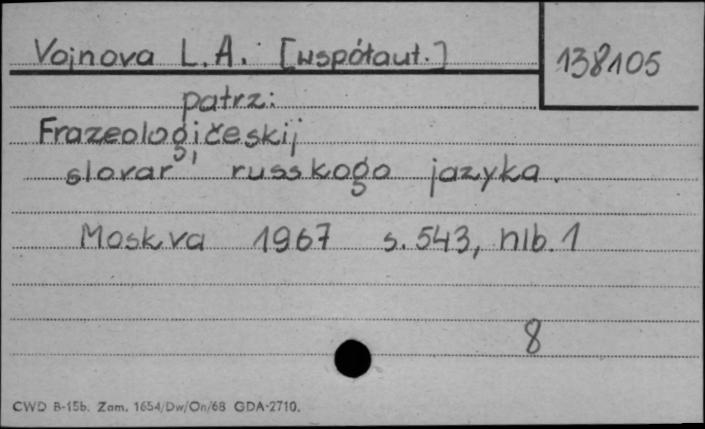 Vojnova L.A. [współaut.]
138105
patrz:
Frazeologičeskij
slovar' russkogo jazyka.
Moskva 1967 s. 543, nlb. 1
8
CWD B-15b. Zam. 1654/Dw/On/68 GDA-2710.